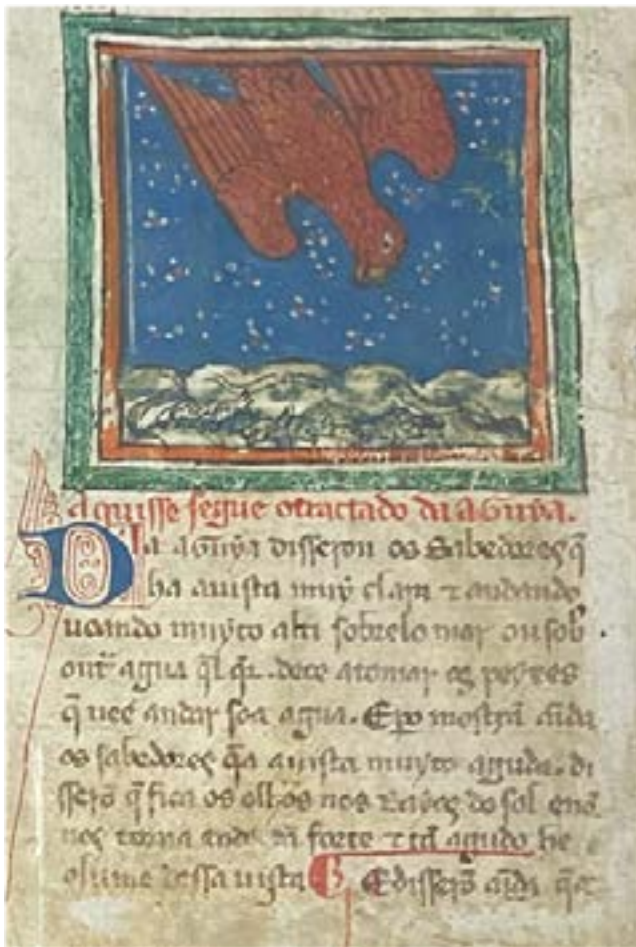 Aquisse segue o tractado da aguya.
Da aguya disseron os sabedores q̃
ha a uista muy clara ⁊ andando
uoando muyto alta sobrelo mar ou sob
out̃ agua q̃l q̃r. dece a tomar os peyxes
q̃ uee andar so a agua. E mostrã aĩda
os sabedores q̃ a uista muyto aguda. di
sserõ q̃ fica os olhos nos rayos do sol e nõ
forte ⁊ tã agudo he
o lume dessa uista E disserõ aĩda q̃ a